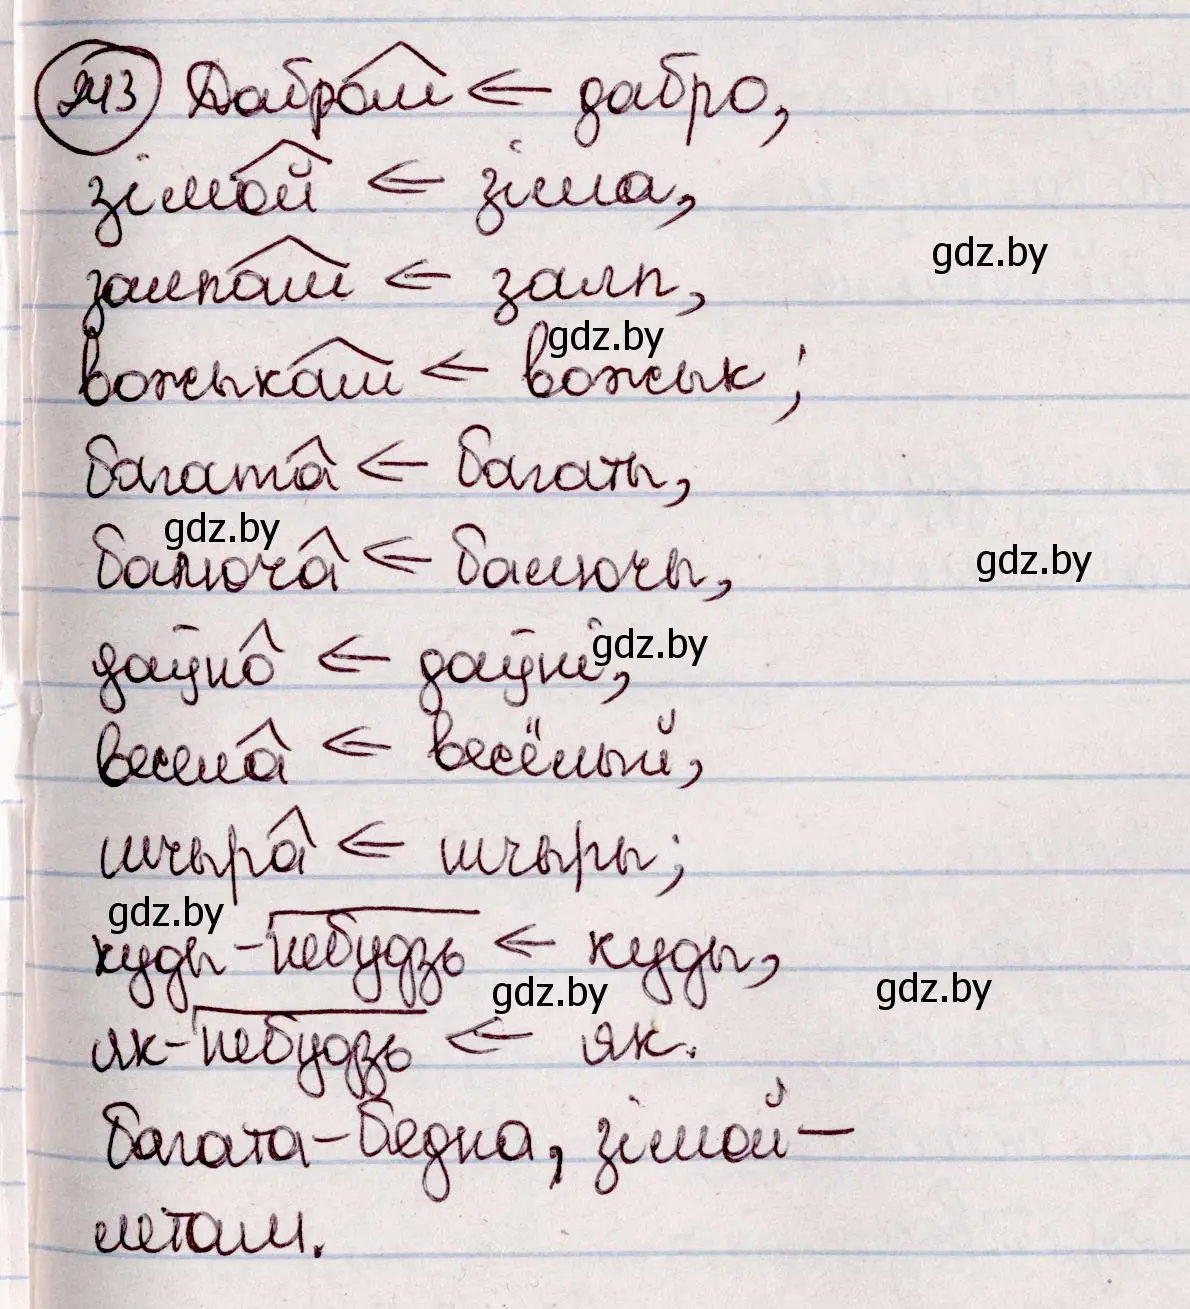 243 Дабром ← дабро,
зімой ← зіма,
gdz.by
залпам ← залп,
gdz.by
вожыкам ← вожык;
багата ← багаты,
gdz.by
балюча ← балючы,
gdz.by
даўно ← даўні,
gdz.by
весела ← весёлый,
шчыра ← шчыры;
gdz.by
куды-небудзь ← куды,
gdz.by
gdz.by
як-небудзь ← як.
багата-бедна, зімой-
летам.